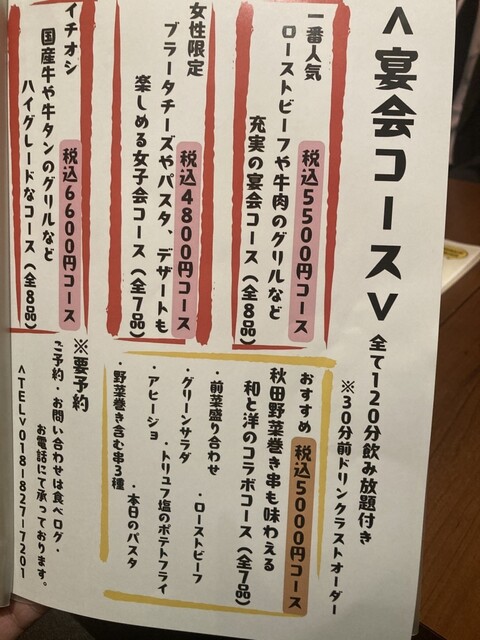 <宴会コース>
全て120分飲み放題付き
※30分前ドリンクラストオーダー
一番人気
税込5500円コース
ローストビーフや牛肉のグリルなど
充実の宴会コース(全8品)
女性限定
税込4800円コース
ブラータチーズやパスタ、デザートも
楽しめる女子会コース(全7品)
イチオシ
税込6600円コース
国産牛や牛タンのグリルなど
ハイグレードなコース(全8品)
おすすめ
税込5000円コース
秋田野菜巻き串も味わえる
和と洋のコラボコース(全7品)
・前菜盛り合わせ
・ローストビーフ
・グリーンサラダ
・トリュフ塩のポテトフライ
・アヒージョ
・本日のパスタ
・野菜巻き含む串3種
※要予約
ご予約・お問い合わせは食べログ・
お電話にて承っております。
<TEL>018-827-7201